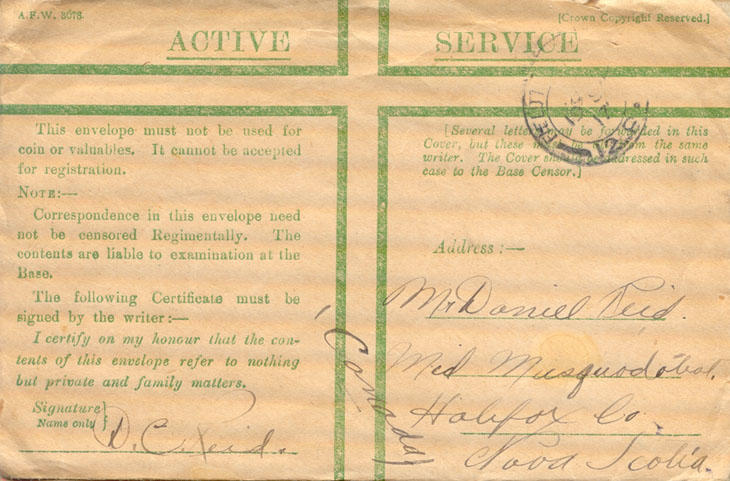 A.F.W. 3078.
[Crown Copyright Reserved.]
ACTIVE SERVICE
This envelope must not be used for
coin or valuables. It cannot be accepted
for registration.
NOTE:—
Correspondence in this envelope need
not be censored Regimentally. The
contents are liable to examination at the
Base.
The following Certificate must be
signed by the writer:—
I certify on my honour that the con-
tents of this envelope refer to nothing
but private and family matters.
Signature
Name only
D. C. Reid.
[Several letters may be forwarded in this
Cover, but these must be from the same
writer. The Cover should be addressed in such
case to the Base Censor.]
Address:—
Mr Daniel Reid.
Mid Musquodoboit.
Halifax Co.
Nova Scotia.
Canada